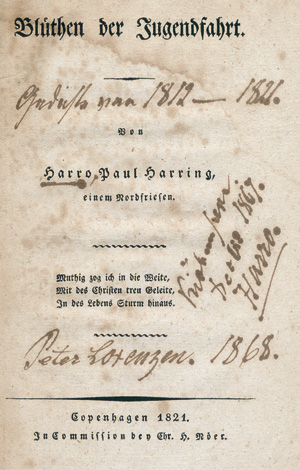 Blüthen der Jugendfahrt.
Gedichte van 1812 — 1821.
Von
Harro, Paul Harring,
einem Nordfriesen.
1867.
Harro.
Muthig zog ich in die Weite,
Mit des Christen treu Geleite,
In des Lebens Sturm hinaus.
Peter Lorenzen. 1868.
Copenhagen 1821.
In Commission bey Chr. H. Nöer.